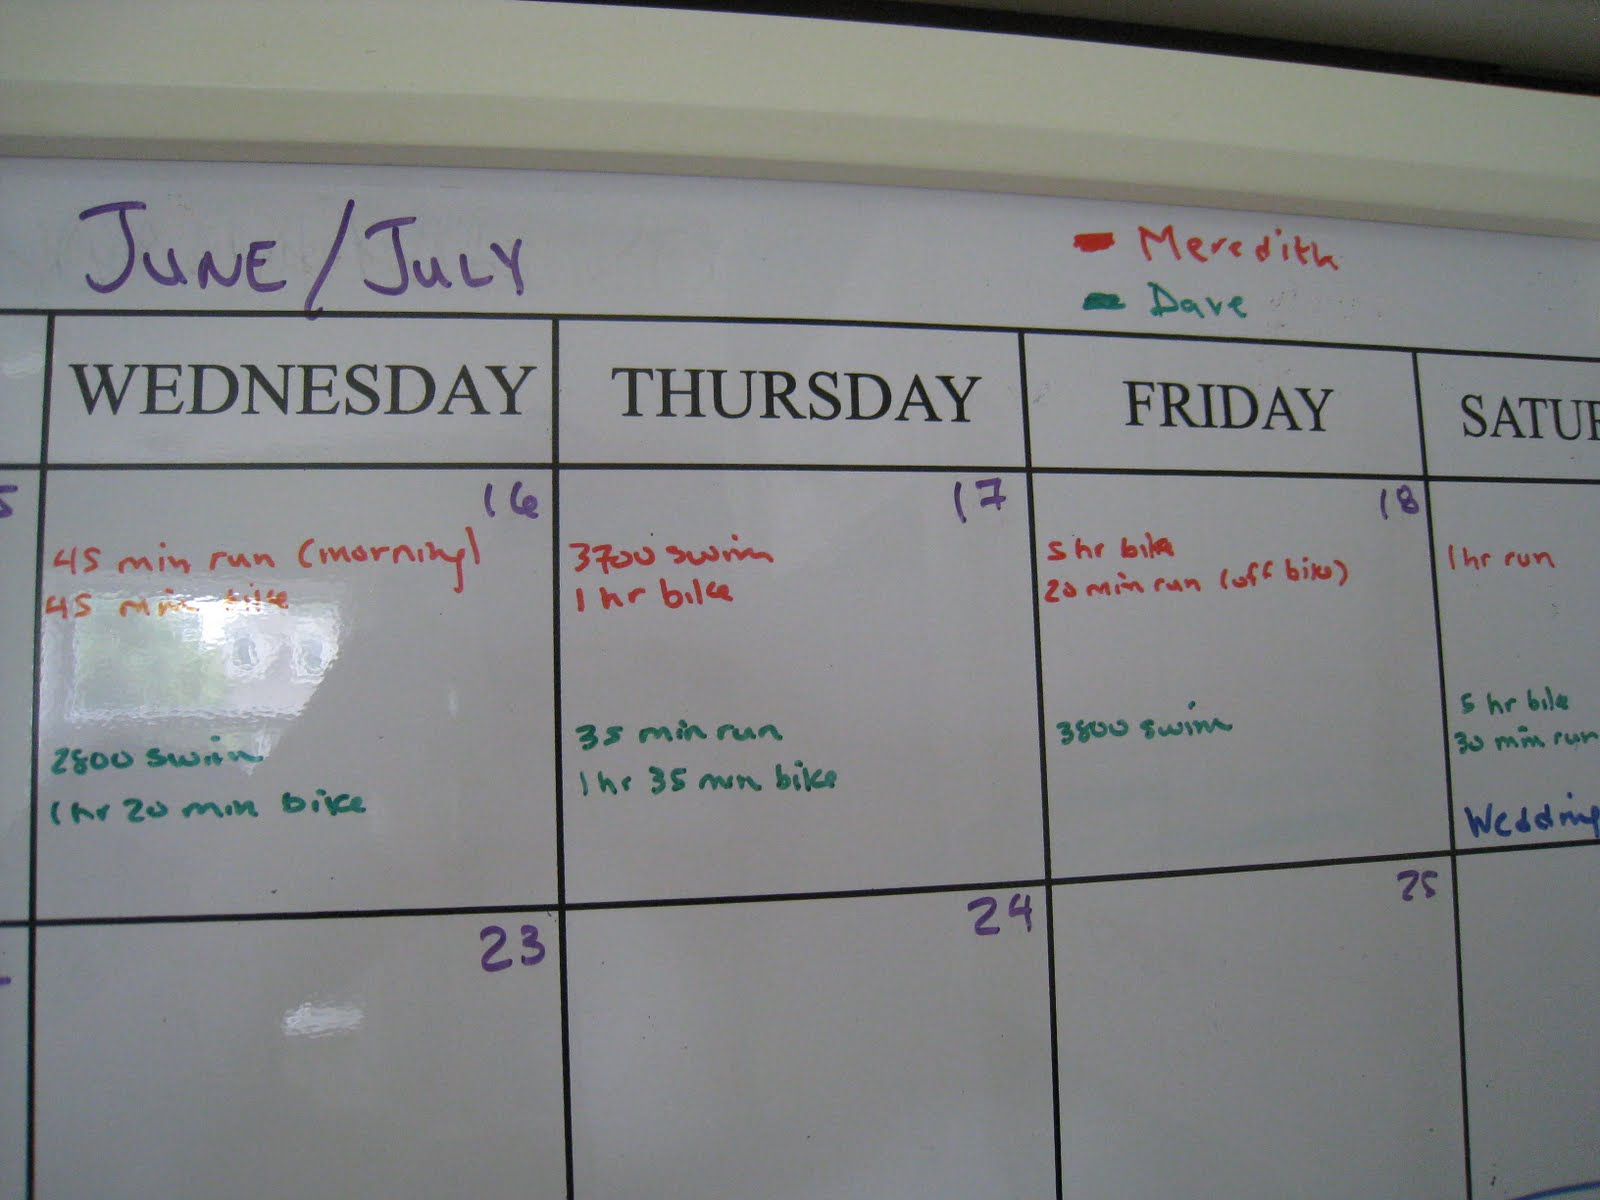 JUNE/JULY
Meredith
Dave
WEDNESDAY THURSDAY FRIDAY SATUR
5 16 17 18
45 min run (morning)
45 min bike
2800 swim
1 hr 20 min bike
3700 swim
1 hr bike
35 min run
1 hr 35 min bike
5 hr bike
20 min run (off bike)
3800 swim
1 hr run
5 hr bike
30 min run
Wedding
23 24 25